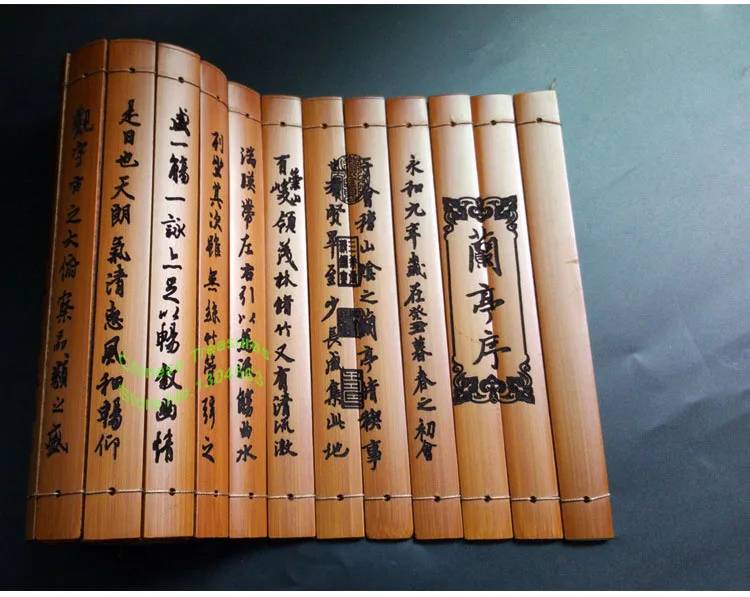 蘭亭序
永和九年歲在癸丑暮春之初會
于會稽山陰之蘭亭脩稧事
也羣賢畢至少長咸集此地
有崇山峻領茂林脩竹又有清流激
湍暎帶左右引以為流觴曲水
列坐其次雖無絲竹管弦之
盛一觴一詠亦足以暢敘幽情
是日也天朗氣清惠風和暢仰
觀宇宙之大俯察品類之盛
Chinese Treasure